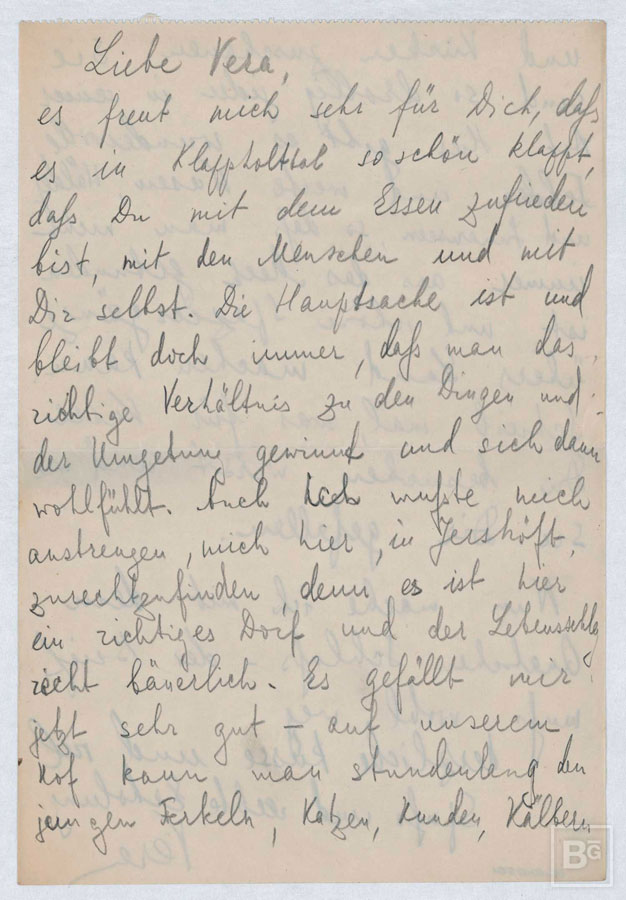 Liebe Vera,
es freut mich sehr für Dich, daß
es in Klappholttal so schön klappt,
daß Du mit dem Essen zufrieden
bist, mit den Menschen und mit
Dir selbst. Die Hauptsache ist und
bleibt doch immer, daß man das
richtige Verhältnis zu den Dingen und
der Umgebung gewinnt und sich dann
wohlfühlt. Auch ich mußte mich
anstrengen, mich hier, in Jershöft,
zurechtzufinden, denn es ist hier
ein richtiges Dorf und der Lebensschlag
recht bäuerlich. Es gefällt mir
jetzt sehr gut – auf unserem
Hof kann man stundenlang den
jungen Ferkeln, Katzen, Hunden, Kälbern
BG